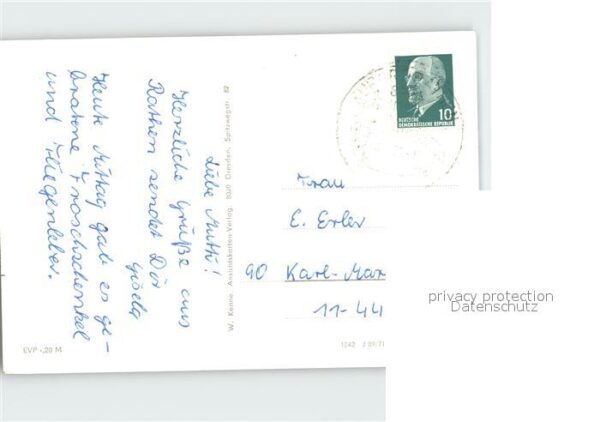 Liebe Mutti!
Herzliche Grüße aus
Rathen sendet Dir
Gisela
Heute Mittag gab es ge-
bratene Froschschenkel
und Fliegenleber.
W. Kenne Ansichtskarten-Verlag, 8020 Dresden, Spitzwegstr. 82
DEUTSCHE
DEMOKRATISCHE REPUBLIK
10
Frau
E. Erler
90 Karl-Mar
11-44
EVP -,20 M
privacy protection
Datenschutz